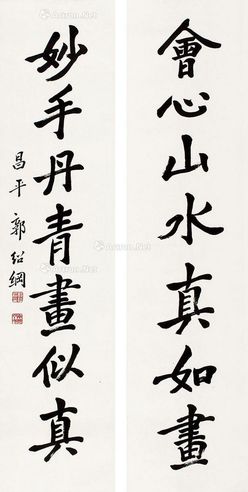 會心山水真如畫
妙手丹青畫似真
昌平郭紹綱